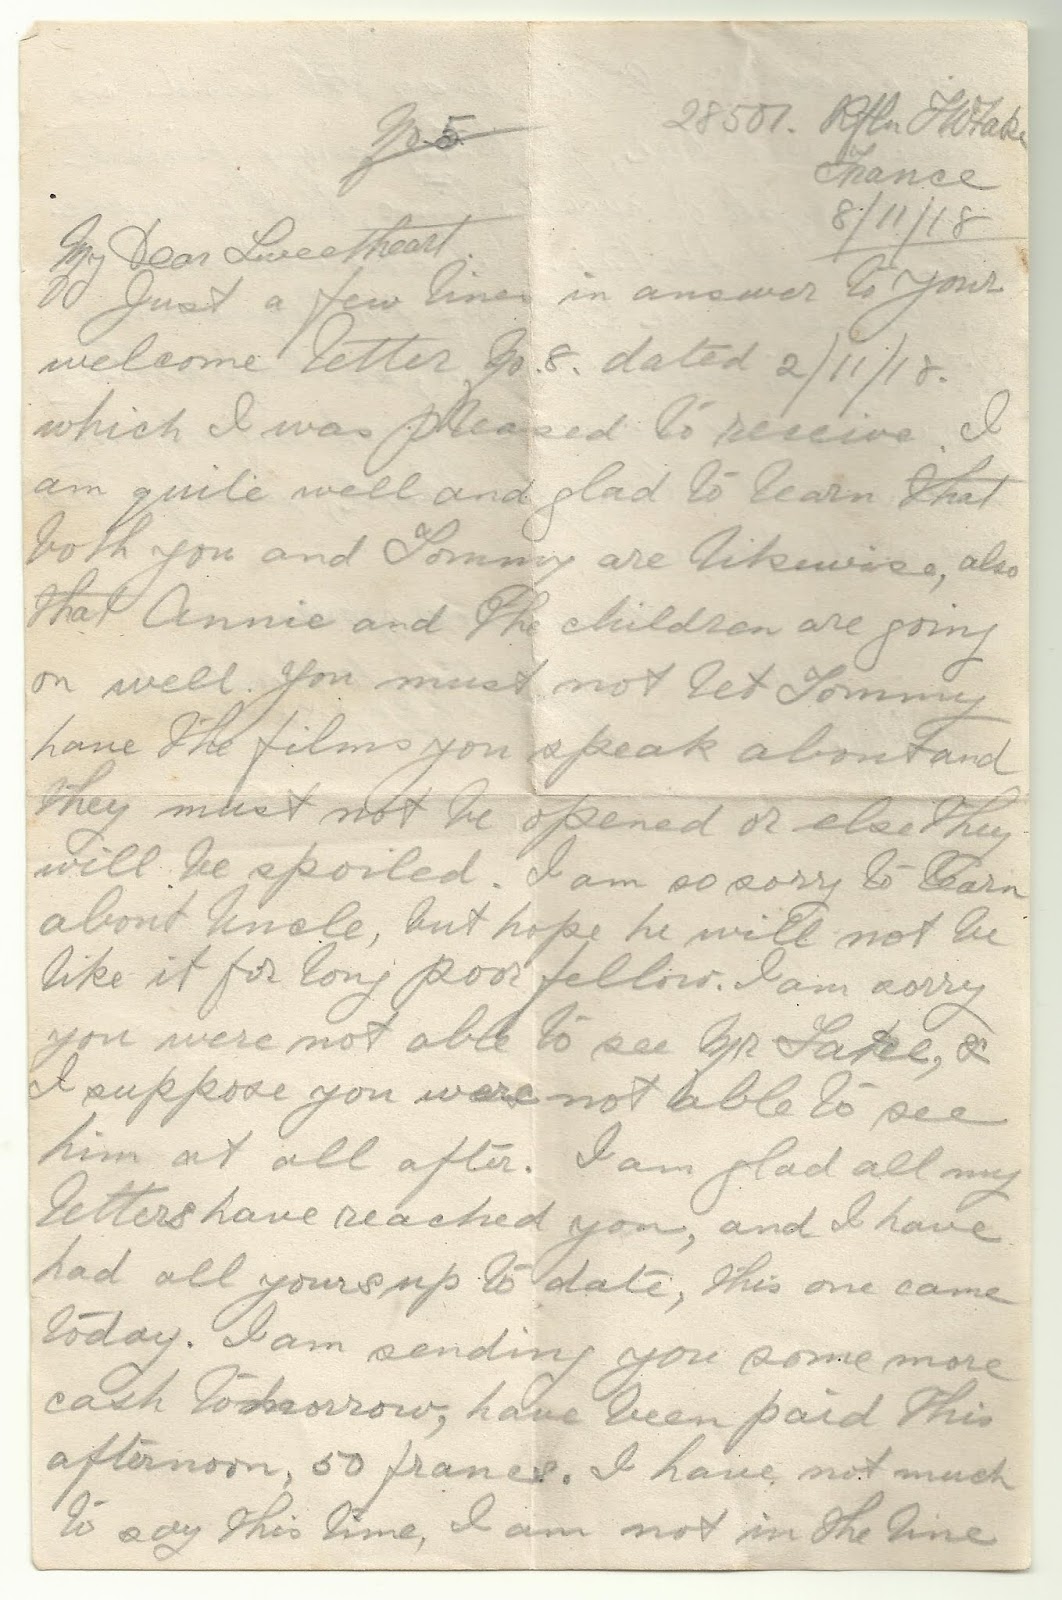 No. 5
28501. Rfln
France
8/11/18
My Dear Sweetheart.
Just a few lines in answer to your
welcome letter No. 8. dated 2/11/18.
which I was pleased to receive. I
am quite well and glad to learn that
both you and Tommy are likewise, also
that Annie and the children are going
on well. You must not let Tommy
have the films you speak about and
they must not be opened or else they
will be spoiled. I am so sorry to learn
about Uncle, but hope he will not be
like it for long poor fellow. I am sorry
you were not able to see Mr &
I suppose you were not able to see
him at all after. I am glad all my
letters have reached you, and I have
had all yours up to date, this one came
today. I am sending you some more
cash tomorrow, have been paid this
afternoon, 50 francs. I have not much
to say this time, I am not in the line